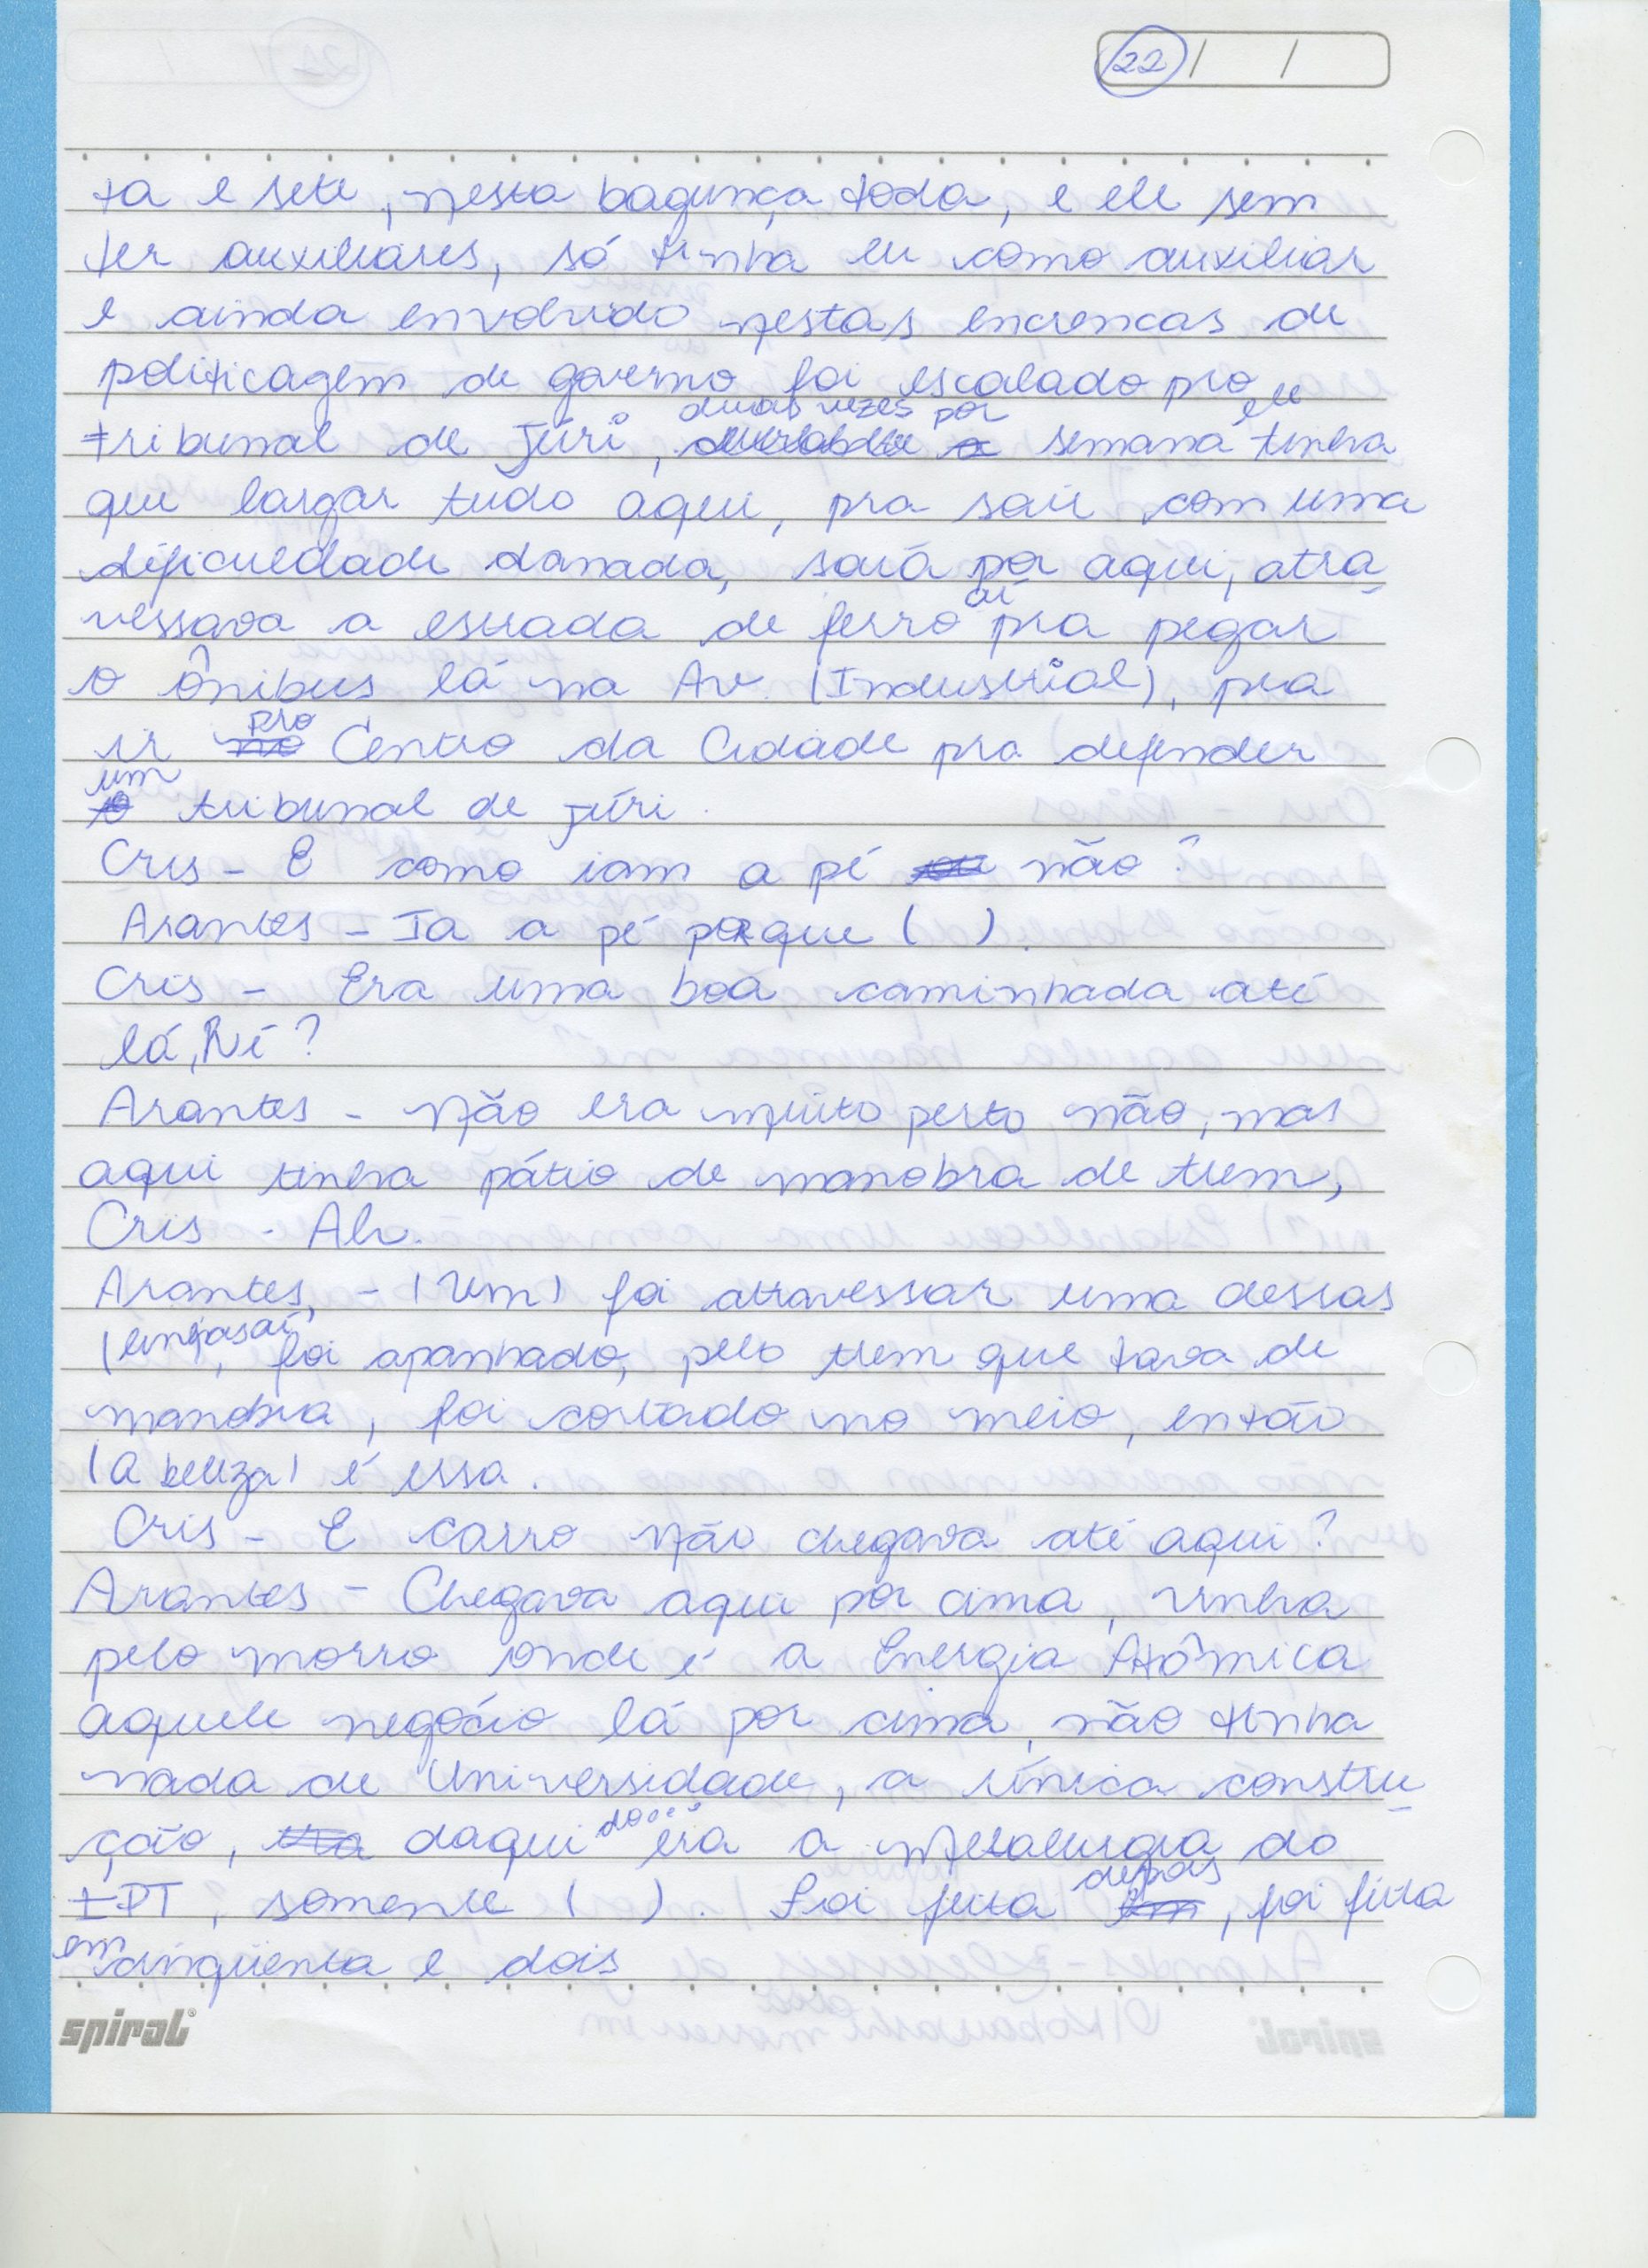 22 / /
ta e sete, nesta bagunça toda, e ele sem
ter auxiliares, só tinha eu como auxiliar
e ainda envolvido nestas encrencas de
politicagem de governo foi escalado pro
tribunal de Júri, duas vezes por semana ele tinha
que largar tudo aqui, pra sair com uma
dificuldade danada, saía por aqui, atra
vessava a estrada de ferro aí pra pegar
o Ônibus lá na Av. (Industrial), pra
ir pro Centro da Cidade pra defender
um tribunal de júri.
Cris - E como iam a pé não?
Arantes - Ia a pé porque ( ).
Cris - Era uma boa caminhada até
lá, Né?
Arantes - Não era muito perto não, mas
aqui tinha pátio de manobra de trem,
Cris - Ah.
Arantes, - (Um) foi atravessar uma dessas
foi apanhado, pelo trem que tava de
manobra, foi cortado no meio, então
(a beleza) é essa.
Cris - E carro não chegava até aqui?
Arantes - Chegava aqui por cima, vinha
pelo morro onde é a Energia Atômica
aquele negócio lá por cima, não tinha
nada de Universidade, a única constru
ção, daqui era a Metalurgia do
IPT, somente ( ). Foi feita depois, foi feita
em cinqüenta e dois
spiral®